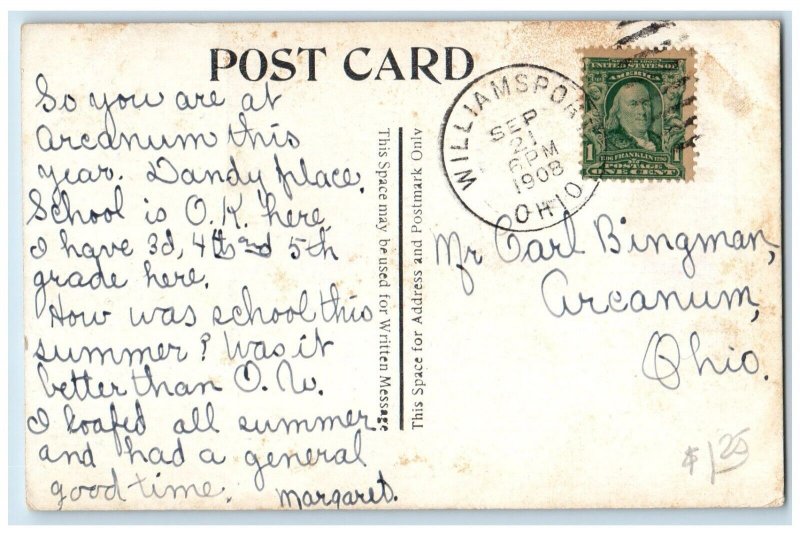 POST CARD
So you are at
Arcanum this
year. Dandy place.
School is O.K. here
I have 3d, 4th and 5th
grade here.
How was school this
summer? Was it
better than O.W.
I loafed all summer
and had a general
good time.
Margaret.
This Space may be used for Written Message
This Space for Address and Postmark Only
WILLIAMSPORT
SEP
21
6 PM
1908
OHIO
SERIES 1902
UNITED STATES OF
AMERICA
1706 FRANKLIN 1790
1 POSTAGE 1
ONE CENT
Mr Carl Bingman,
Arcanum,
Ohio.
$1.25